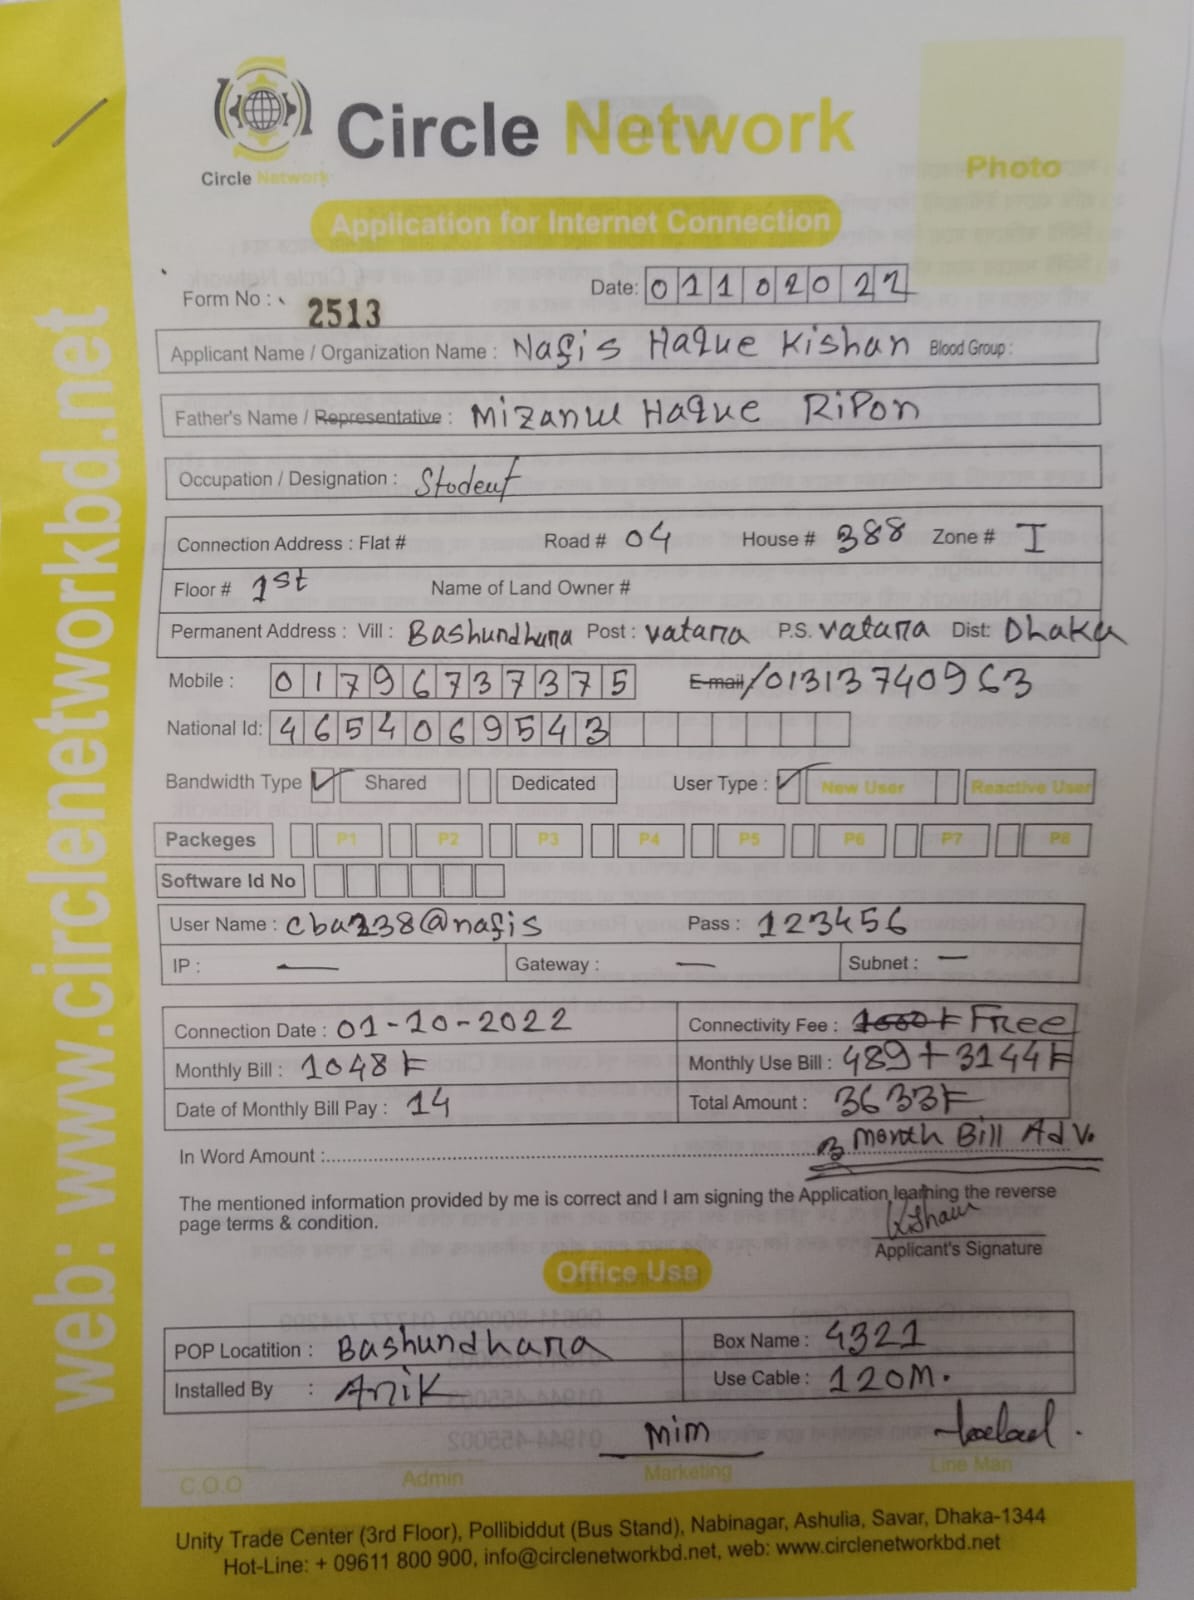 Circle Network
Circle Network
Photo
Application for Internet Connection
Form No : 2513
Date: 01102022
Applicant Name / Organization Name : Nafis Haque Kishan Blood Group :
Father's Name / Representative : Mizanul Haque Ripon
Occupation / Designation : Student
Connection Address : Flat # Road # 04 House # 388 Zone # I
Floor # 1st Name of Land Owner #
Permanent Address : Vill : Bashundhara Post : vatara P.S. vatara Dist: Dhaka
Mobile : 01796737375 E-mail /01313740963
National Id: 4654069543
Bandwidth Type ✓ Shared Dedicated User Type : ✓ New User Reactive User
Packeges P1 P2 P3 P4 P5 P6 P7 P8
Software Id No
User Name : cba238@nafis Pass : 123456
IP : — Gateway : — Subnet : —
Connection Date : 01-10-2022 Connectivity Fee : 1000 Free
Monthly Bill : 1048 Monthly Use Bill : 489 + 3144
Date of Monthly Bill Pay : 14 Total Amount : 3633
In Word Amount :................ 3 Month Bill Adv.
The mentioned information provided by me is correct and I am signing the Application learning the reverse
page terms & condition.
Kishan
Applicant's Signature
Office Use
POP Locatition : Bashundhara Box Name : 4321
Installed By : Anik Use Cable : 120M.
Mim
C.O.O Admin Marketing Line Man
Unity Trade Center (3rd Floor), Pollibiddut (Bus Stand), Nabinagar, Ashulia, Savar, Dhaka-1344
Hot-Line: + 09611 800 900, info@circlenetworkbd.net, web: www.circlenetworkbd.net
web: www.circlenetworkbd.net